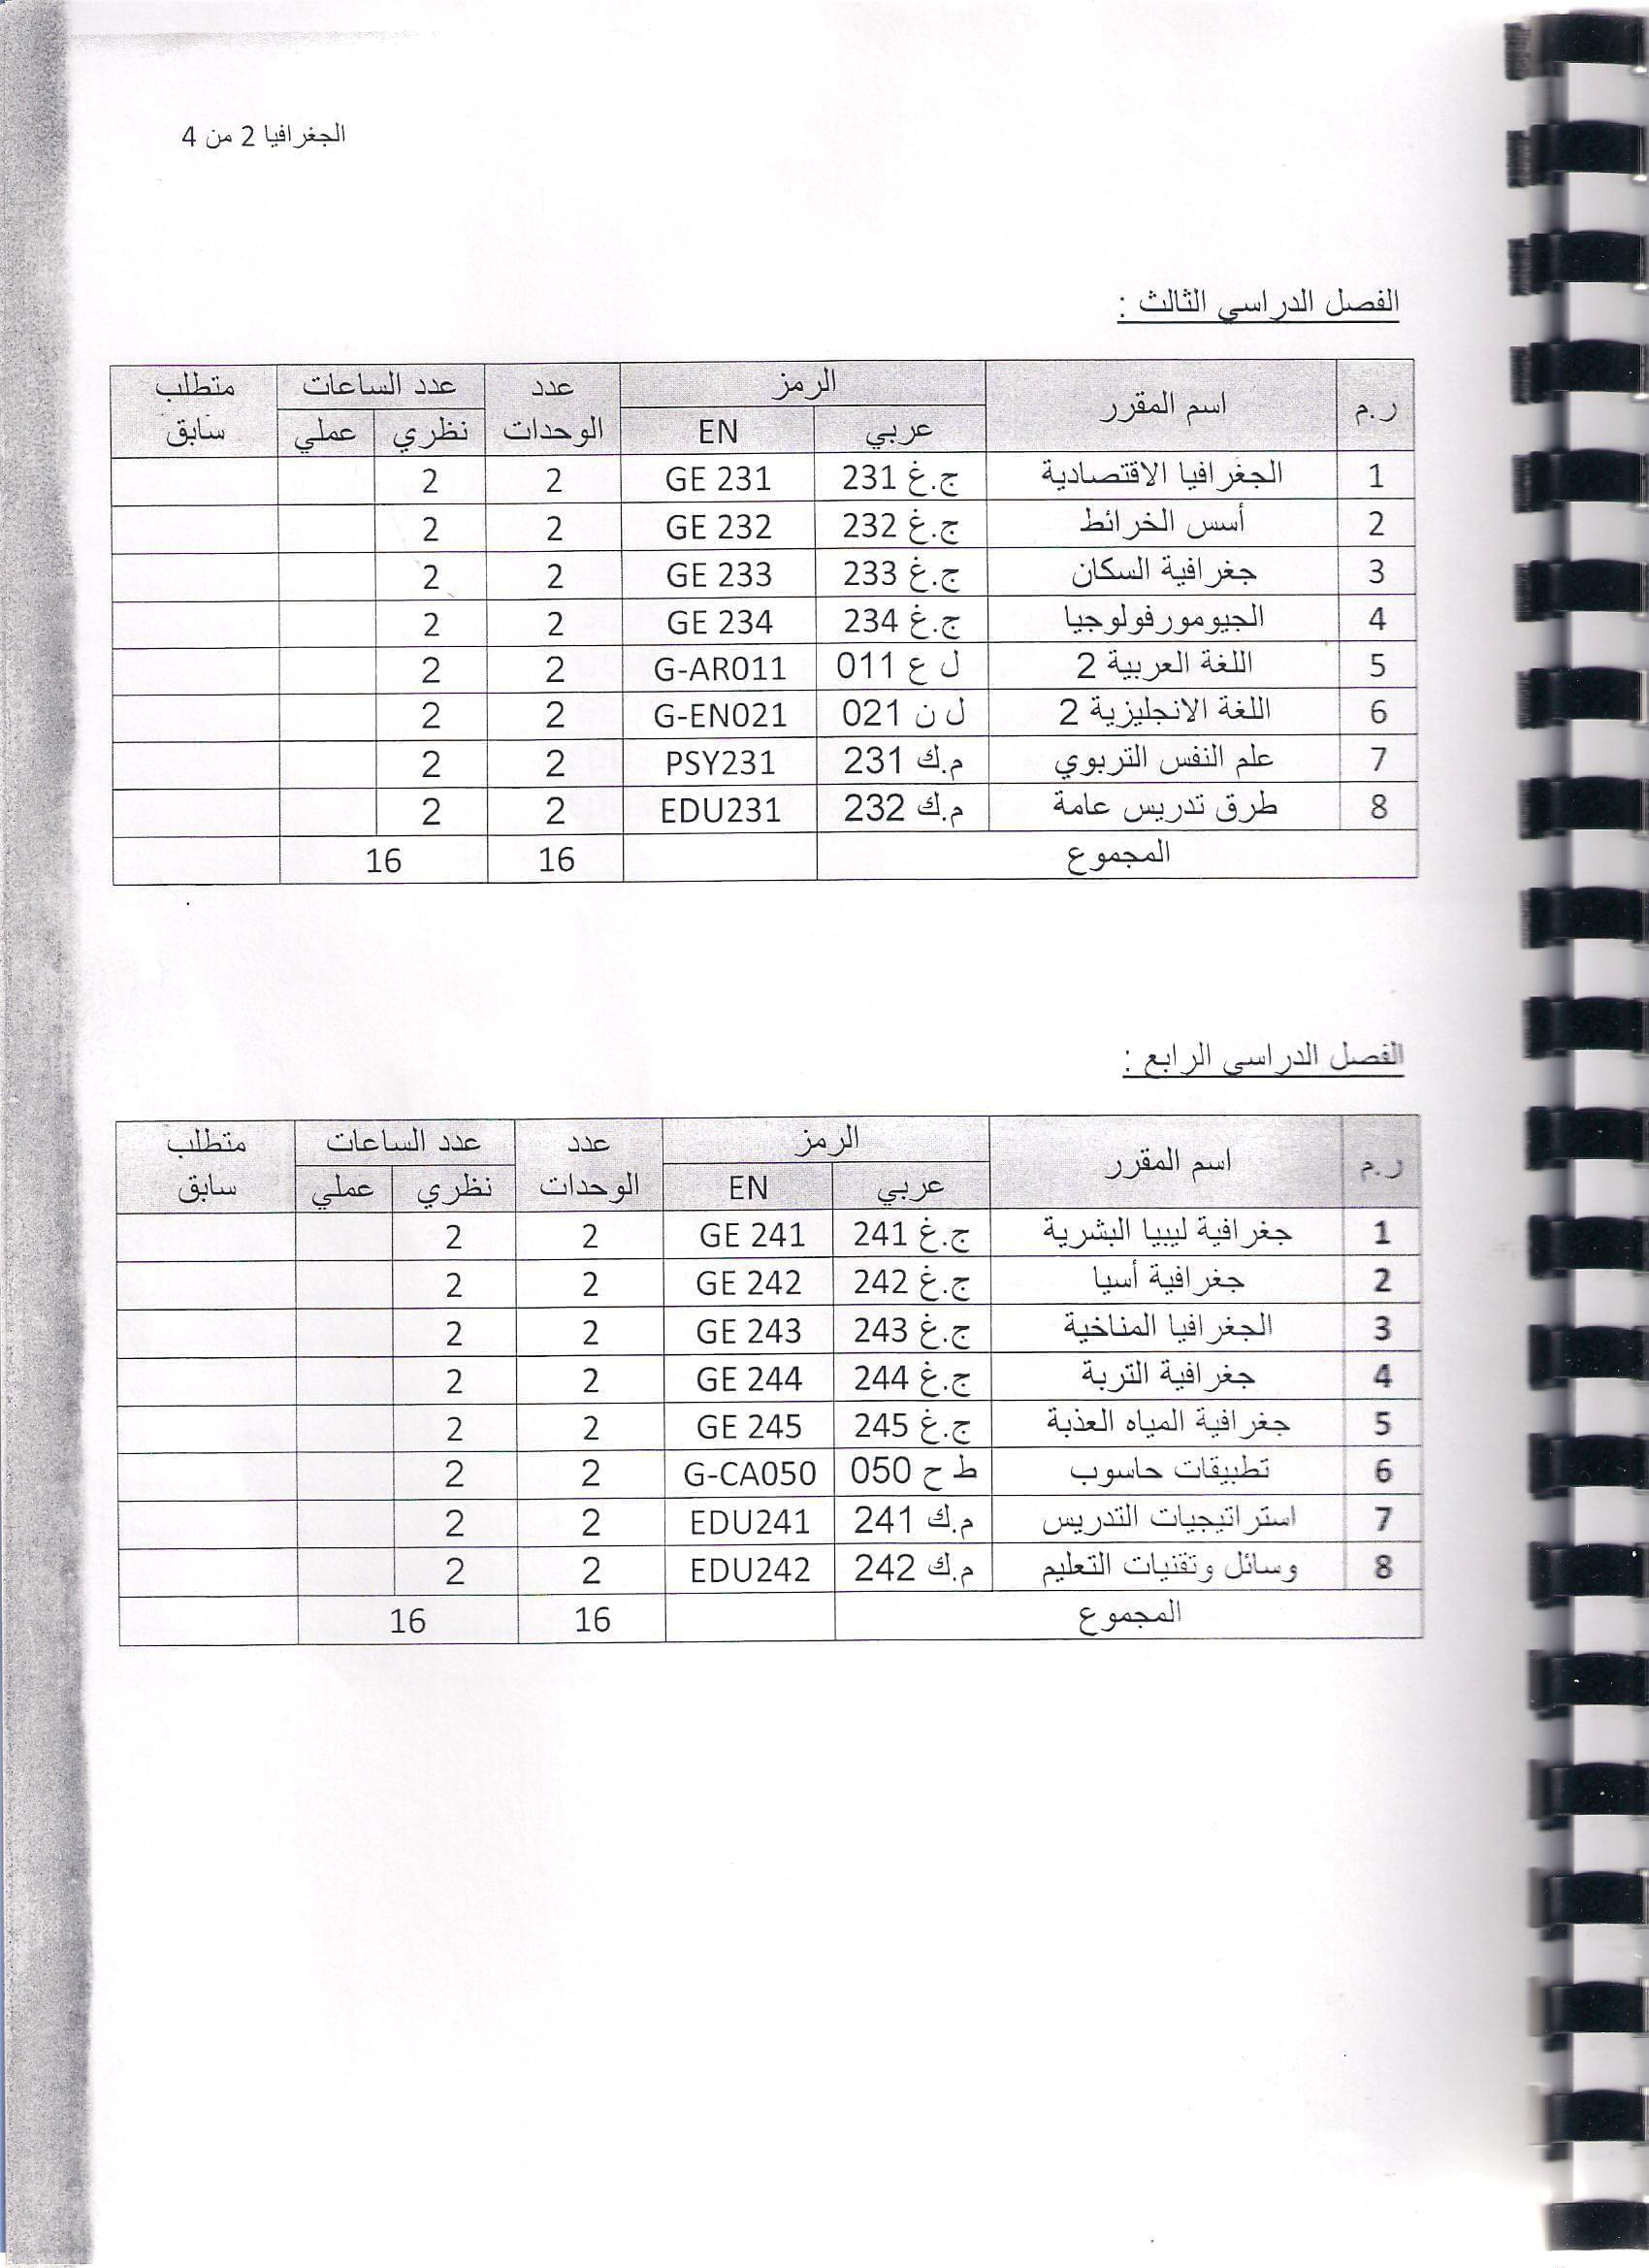 الجغرافيا 2 من 4
الفصل الدراسي الثالث :
ر.م اسم المقرر الرمز عدد الوحدات عدد الساعات متطلب سابق
عربي EN نظري عملي
1 الجغرافيا الاقتصادية ج.غ 231 GE 231 2 2
2 أسس الخرائط ج.غ 232 GE 232 2 2
3 جغرافية السكان ج.غ 233 GE 233 2 2
4 الجيومورفولوجيا ج.غ 234 GE 234 2 2
5 اللغة العربية 2 ل ع 011 G-AR011 2 2
6 اللغة الانجليزية 2 ل ن 021 G-EN021 2 2
7 علم النفس التربوي م.ك 231 PSY231 2 2
8 طرق تدريس عامة م.ك 232 EDU231 2 2
المجموع 16 16
الفصل الدراسي الرابع :
ر.م اسم المقرر الرمز عدد الوحدات عدد الساعات متطلب سابق
عربي EN نظري عملي
1 جغرافية ليبيا البشرية ج.غ 241 GE 241 2 2
2 جغرافية أسيا ج.غ 242 GE 242 2 2
3 الجغرافيا المناخية ج.غ 243 GE 243 2 2
4 جغرافية التربة ج.غ 244 GE 244 2 2
5 جغرافية المياه العذبة ج.غ 245 GE 245 2 2
6 تطبيقات حاسوب ط ح 050 G-CA050 2 2
7 استراتيجيات التدريس م.ك 241 EDU241 2 2
8 وسائل وتقنيات التعليم م.ك 242 EDU242 2 2
المجموع 16 16